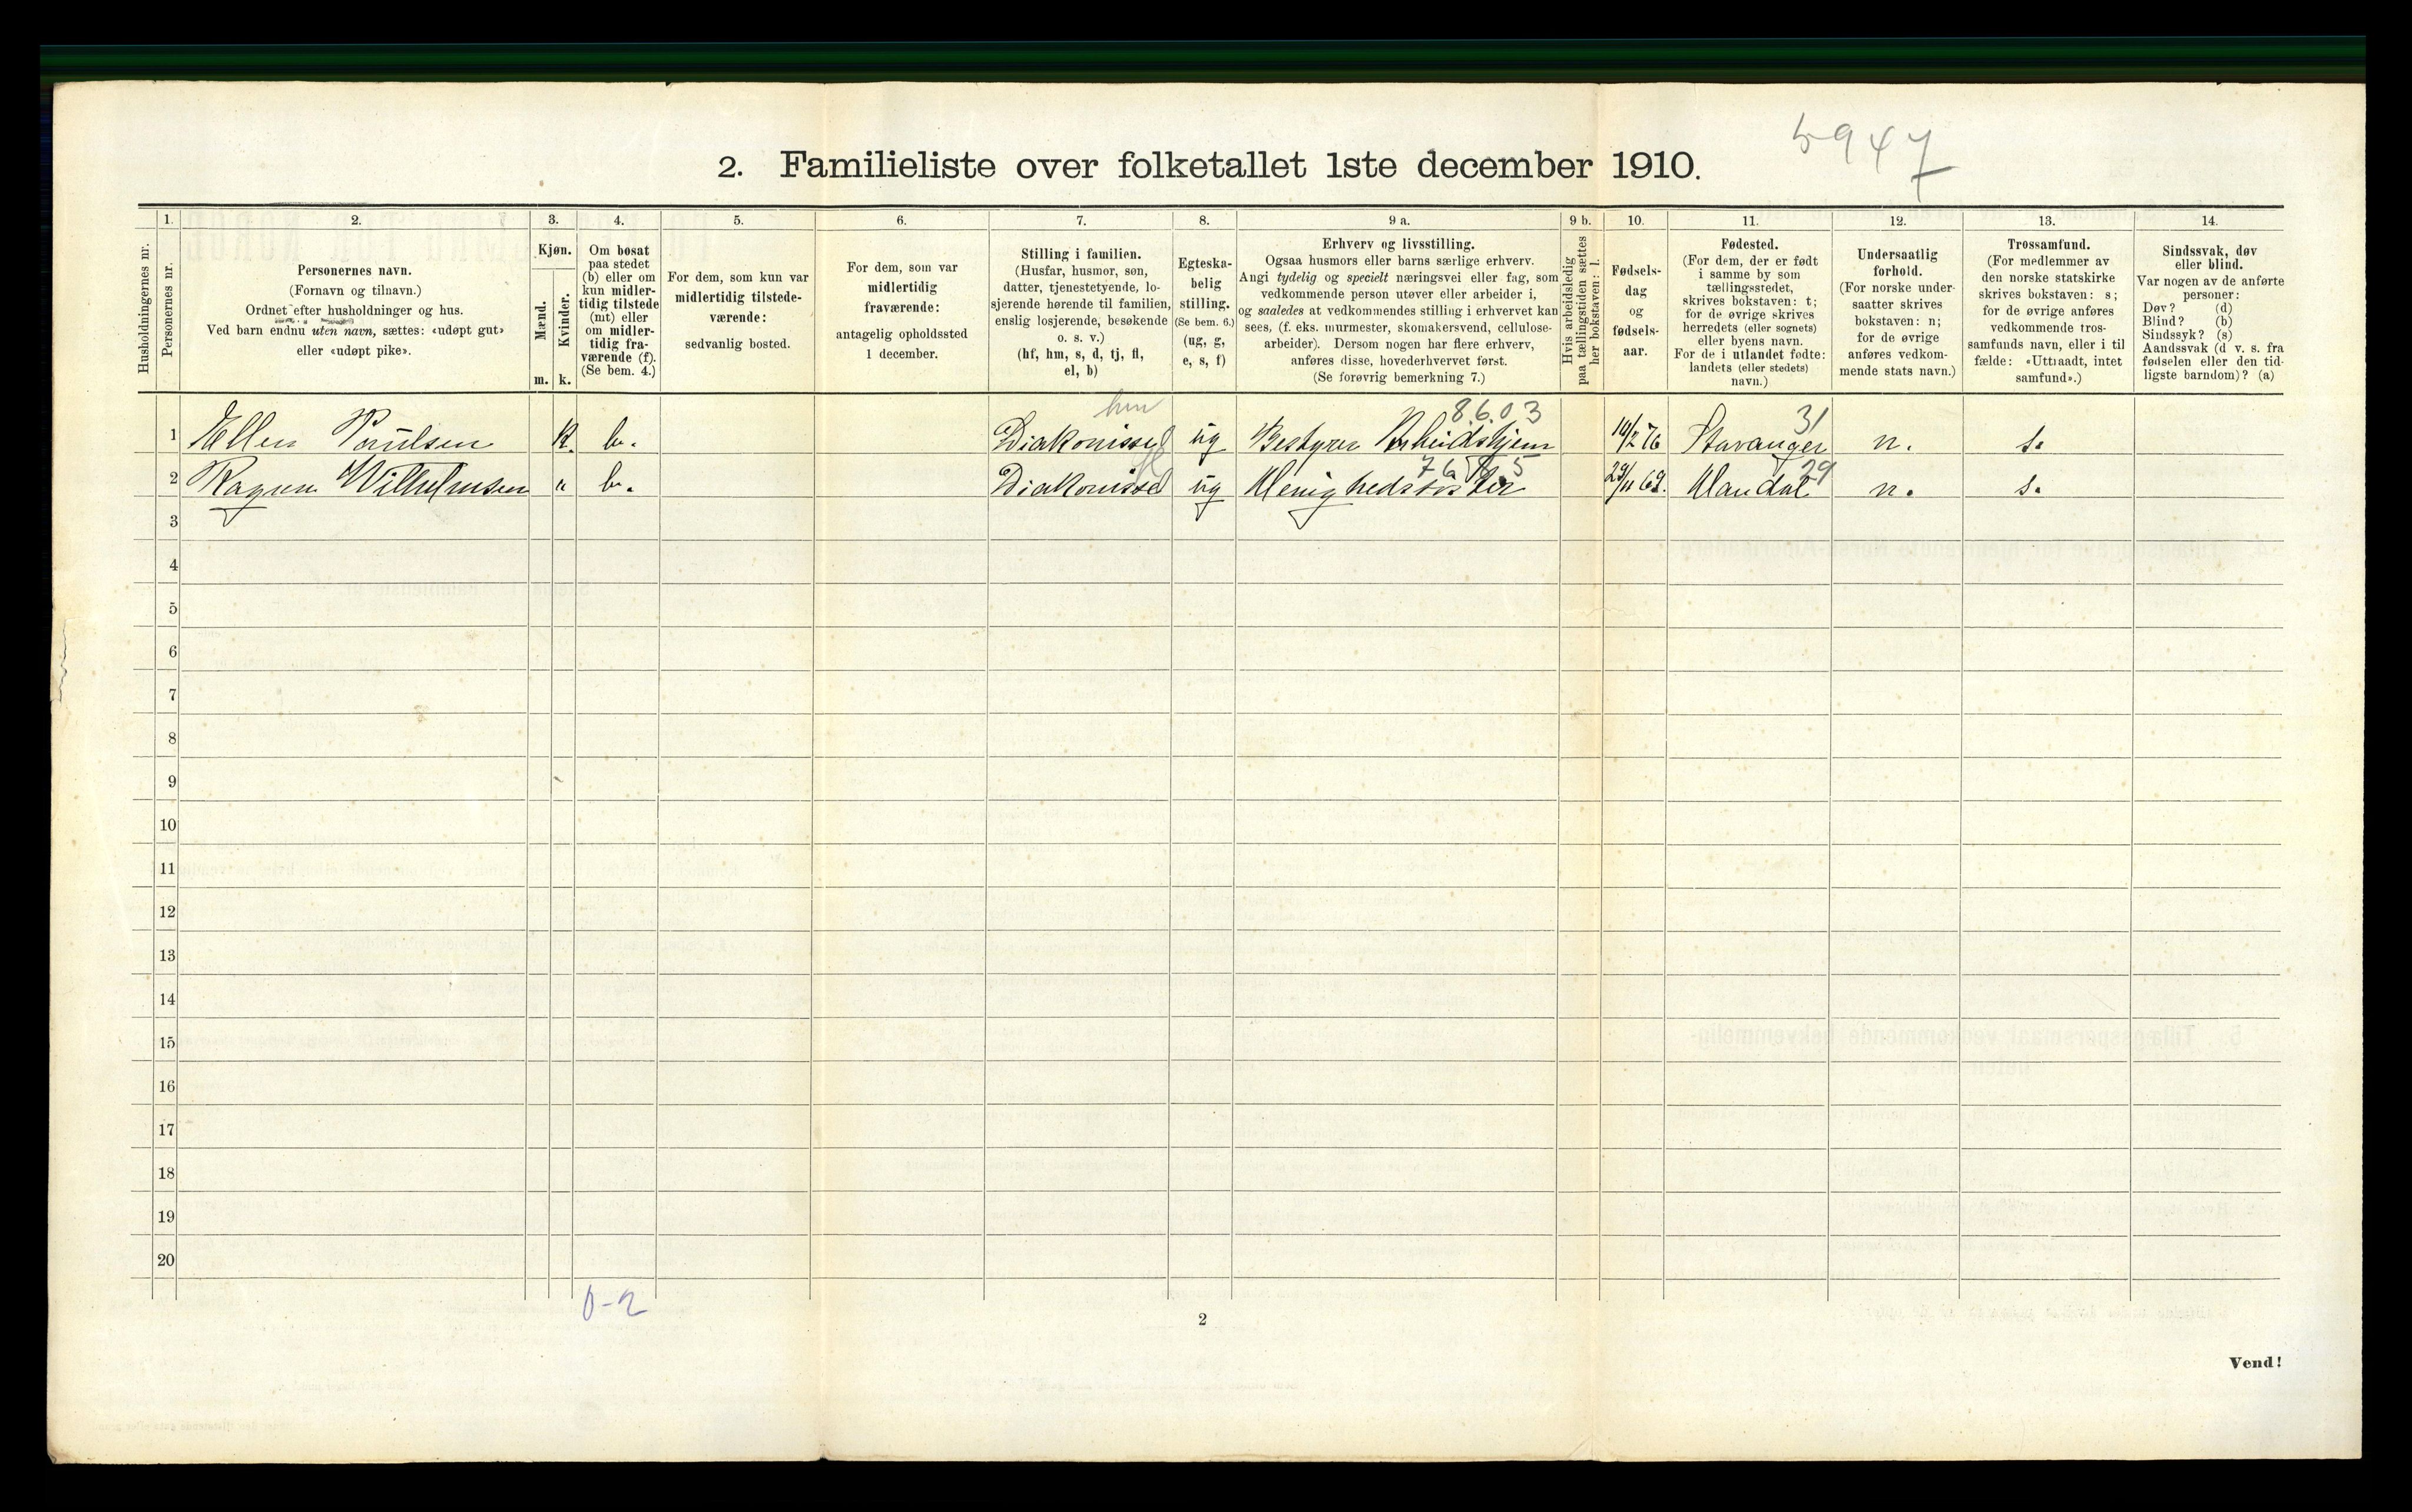 5947
2. Familieliste over folketallet 1ste december 1910.
Husholdningernes nr.
1.
Personernes nr.
2.
Personernes navn.
(Fornavn og tilnavn.)
Ordnet efter husholdninger og hus.
Ved barn endnu uten navn, sættes: «udøpt gut»
eller «udøpt pike».
3.
Kjøn.
Mænd.
m.
Kvinder.
k.
4.
Om bosat
paa stedet
(b) eller om
kun midler-
tidig tilstede
(mt) eller
om midler-
tidig fra-
værende (f).
(Se bem. 4.)
5.
For dem, som kun var
midlertidig tilstede-
værende:
sedvanlig bosted.
6.
For dem, som var
midlertidig
fraværende:
antagelig opholdssted
1 december.
7.
Stilling i familien.
(Husfar, husmor, søn,
datter, tjenestetyende, lo-
sjerende hørende til familien,
enslig losjerende, besøkende
o. s. v.)
(hf, hm, s, d, tj, fl,
el, b)
8.
Egteska-
belig
stilling.
(Se bem. 6.)
(ug, g,
e, s, f)
9 a.
Erhverv og livsstilling.
Ogsaa husmors eller barns særlige erhverv.
Angi tydelig og specielt næringsvei eller fag, som
vedkommende person utøver eller arbeider i,
og saaledes at vedkommendes stilling i erhvervet kan
sees, (f. eks. murmester, skomakersvend, cellulose-
arbeider). Dersom nogen har flere erhverv,
anføres disse, hovederhvervet først.
(Se forøvrig bemerkning 7.)
9 b.
Hvis arbeidsledig
paa tællingstiden sættes
her bokstaven: l.
10.
Fødsels-
dag
og
fødsels-
aar.
11.
Fødested.
(For dem, der er født
i samme by som
tællingsstedet,
skrives bokstaven: t;
for de øvrige skrives
herredets (eller sognets)
eller byens navn.
For de i utlandet fødte:
landets (eller stedets)
navn.)
12.
Undersaatlig
forhold.
(For norske under-
saatter skrives
bokstaven: n;
for de øvrige
anføres vedkom-
mende stats navn.)
13.
Trossamfund.
(For medlemmer av
den norske statskirke
skrives bokstaven: s;
for de øvrige anføres
vedkommende tros-
samfunds navn, eller i til
fælde: «Uttraadt, intet
samfund».)
14.
Sindssvak, døv
eller blind.
Var nogen av de anførte
personer:
Døv? (d)
Blind? (b)
Sindssyk? (s)
Aandssvak (d v. s. fra
fødselen eller den tid-
ligste barndom)? (a)
hm 8.6.03 31
1 Ellen Paulsen K. b. Diakonisse ug Bestyrer Arbeidshjem 14/2 76 Stavanger n. s.
29
2 Ragna Wilhelmsen " b. Diakonisse ug Menighedssøster 29/11 69. Mandal n. s.
3
4
5
6
7
8
9
10
11
12
13
14
15
16
17
18
19
20
0-2
2
Vend!